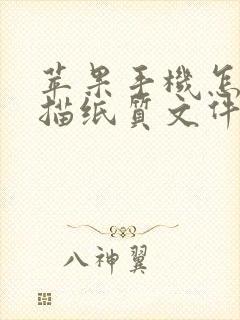 苹果手機怎
描纸質文件
八神翼